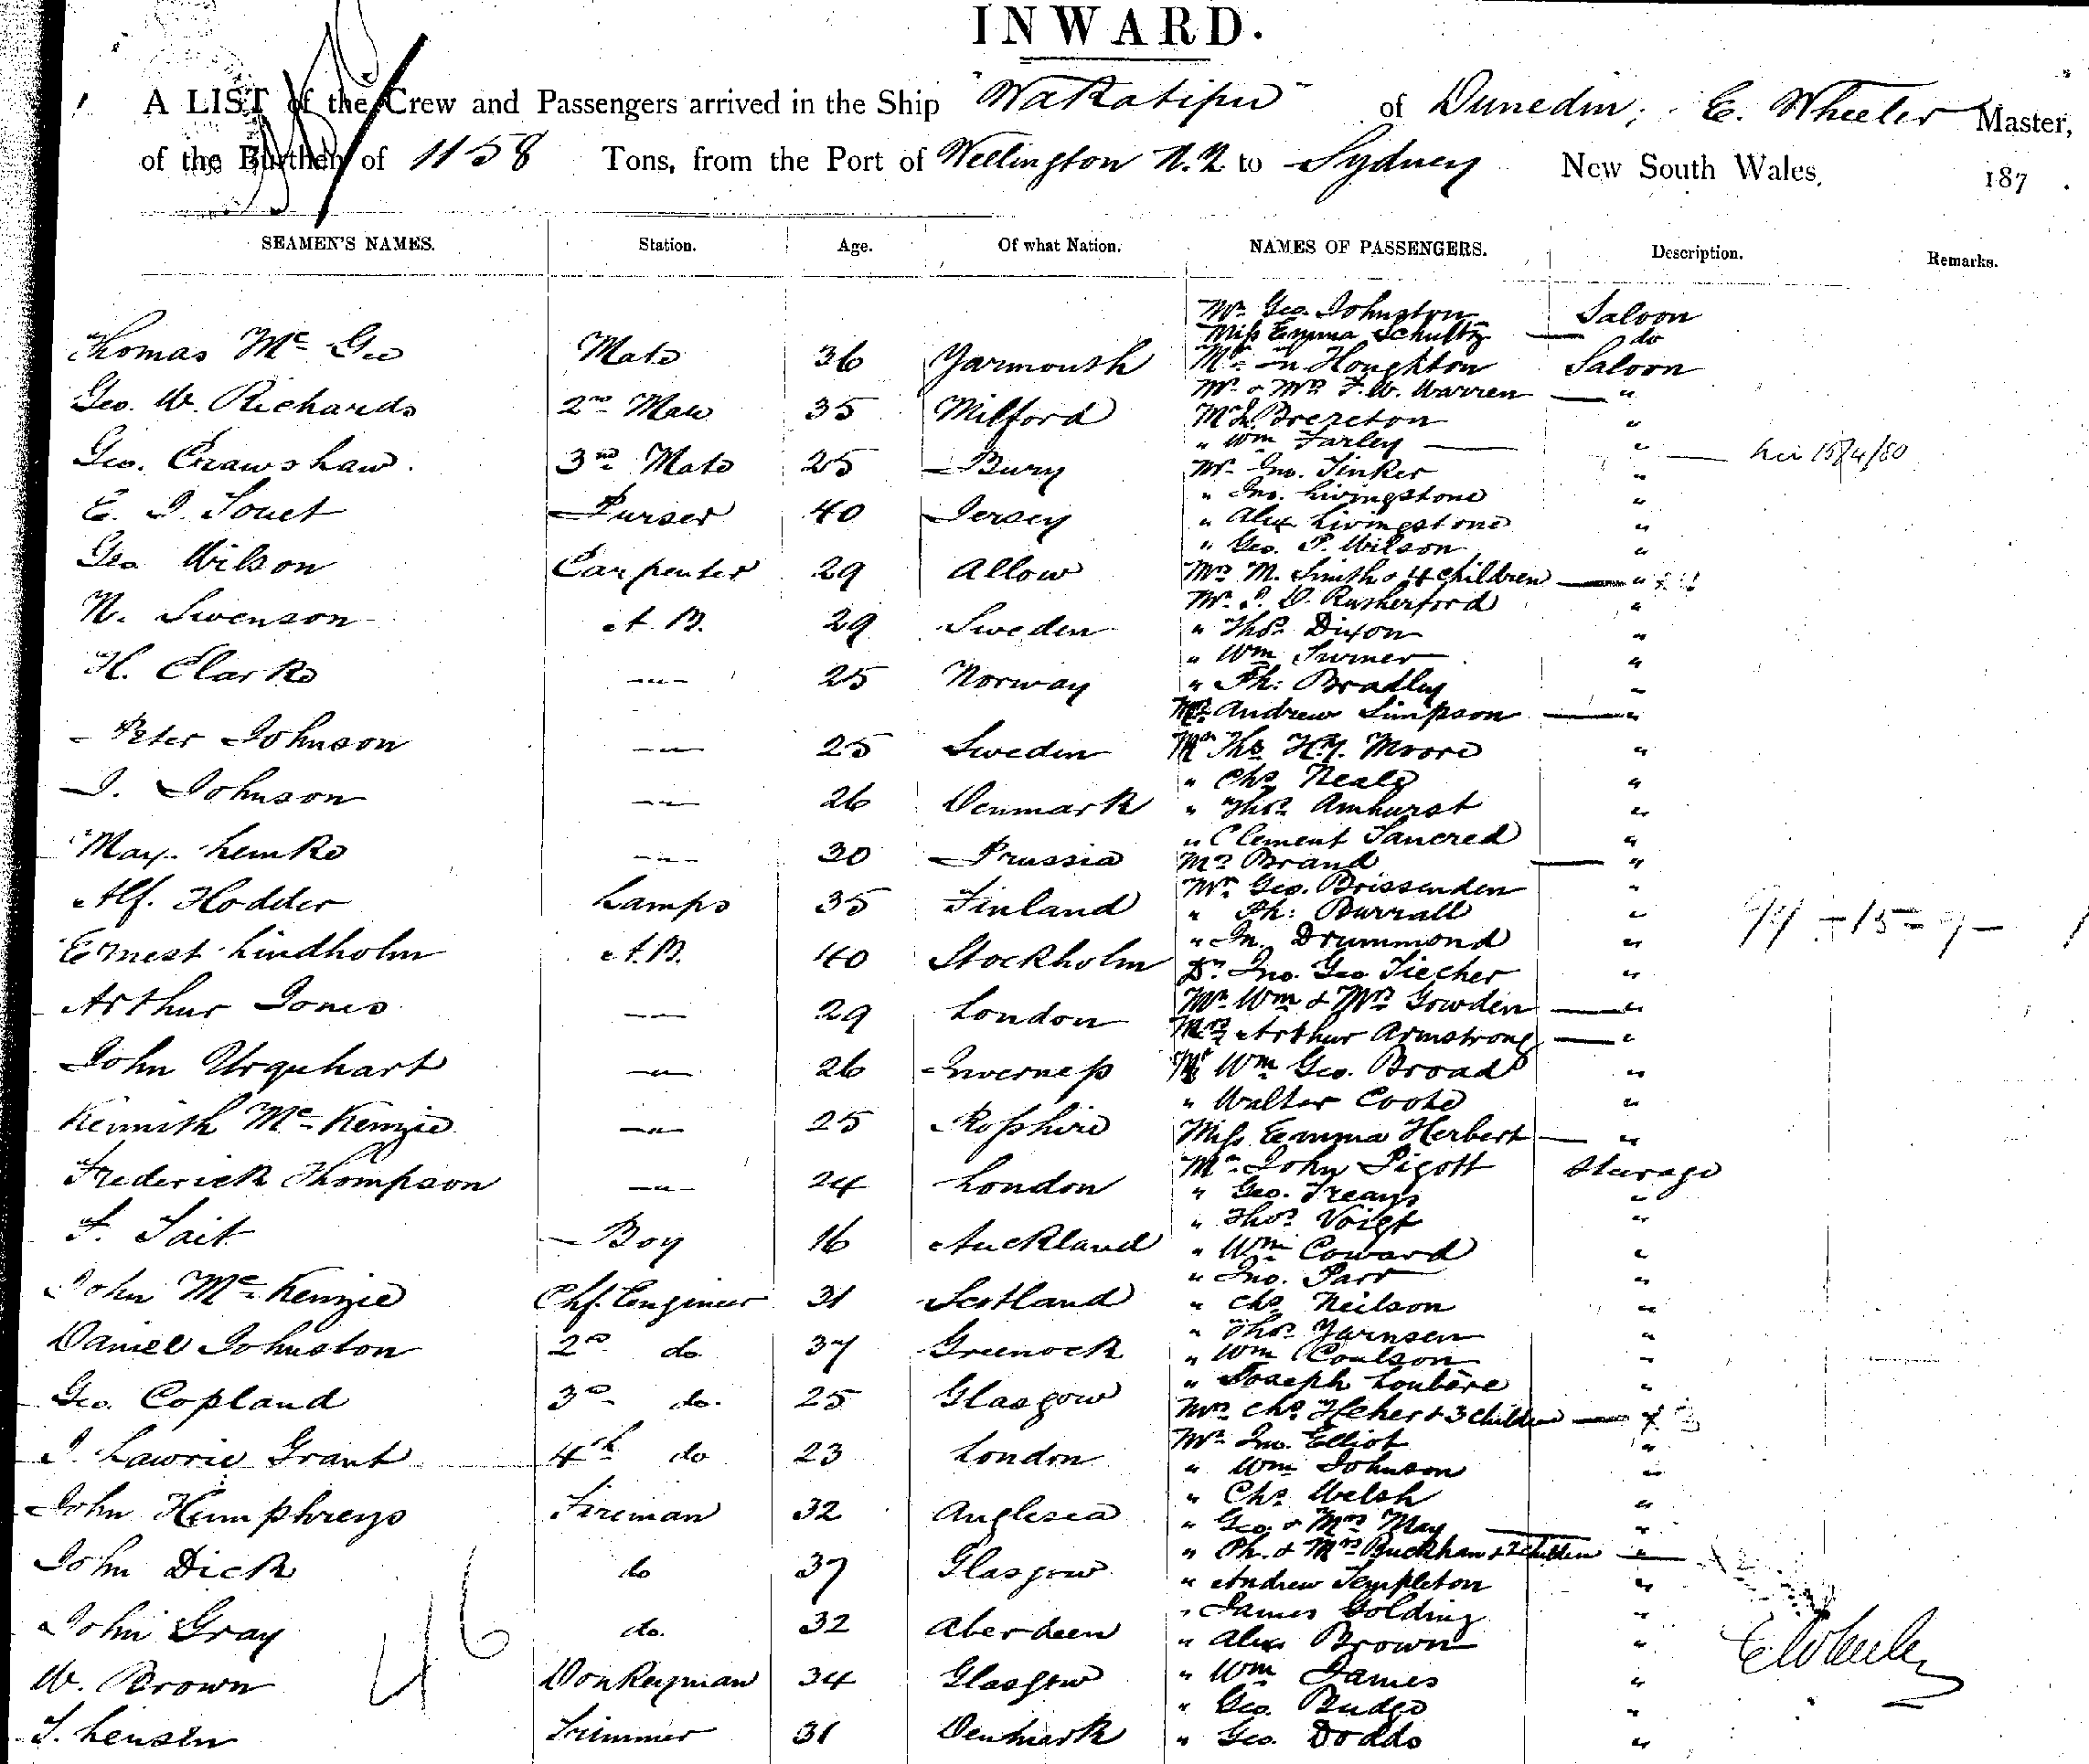 INWARD.
A LIST of the Crew and Passengers arrived in the Ship "Wakatipu" of Dunedin, E. Wheeler Master,
of the Burthen of 1158 Tons, from the Port of Wellington N.Z to Sydney New South Wales, 187 .
SEAMEN'S NAMES. Station. Age. Of what Nation. NAMES OF PASSENGERS. Description. Remarks.
Mr Geo. Johnston Saloon
Miss Emma Schultz — do
Thomas Mc Gee Mate 36 Yarmouth Mr Jn Houghton Saloon
Mr & Mrs F. W. Warren — "
Geo. W. Richards 2nd Mate 35 Milford Mr Brereton "
" Wm Farley — "
Geo. Crawshaw. 3rd Mate 25 Bury Mr Jno. Tinker "
" Jno. Livingstone "
E. J. Souet Purser 40 Jersey " Alex Livingstone "
" Geo. P. Wilson "
Geo Wilson Carpenter 29 Allow Mrs M. Smith & 4 children — "
Mr. J. D. Rutherford "
N. Swenson A. B. 29 Sweden " Thos Dixon "
" Wm Turner "
H. Clarke —"— 25 Norway " Ph: Bradley "
Andrew Simpson — "
Peter Johnson —"— 25 Sweden Mr Ths Hy. Moore "
" Chs Neale "
J. Johnson —"— 26 Denmark " Thos Amhurst "
" Clement Tancred "
Max Lemke —"— 30 Prussia Mrs Brand — "
Mr Geo. Brissenden "
Alf. Hodder Lamps 35 Finland " Ph: Burrall "
" Jn. Drummond "
Ernest Lindholm A.B. 40 Stockholm Dr. Jno. Geo Tiecher "
Mr Wm & Mrs Gowden — "
Arthur Jones —"— 29 London Mrs Arthur Armstrong — "
John Urquhart —"— 26 Inverness Mr Wm Geo. Broad "
" Walter Coote "
Kennith Mc Kenzie —"— 25 Rosshire Miss Emma Herbert — "
Mr John Pigott Steerage
Frederick Thompson —"— 24 London " Geo. Treays "
" Thos Voigt "
F. Tait Boy 16 Auckland " Wm Coward "
" Jno. Parr "
John Mc Kenzie Chf. Engineer 31 Scotland " Chs Neilson "
" Thos Yarnsen "
Daniel Johnston 2nd do 37 Greenock " Wm Coulson "
" Joseph Loubère "
Geo. Copland 3rd do. 25 Glasgow Mrs Chs Heher & 3 children —
Mr Jno. Elliot "
J. Lawrie Grant 4th do 23 London " Wm Johnson "
" Chs Welsh "
John Humphreys Fireman 32 Anglesea " Geo. & Mrs May — "
" Ph. & Mrs Buckham & 2 children — "
John Dick do 37 Glasgow " Andrew Templeton "
" James Golding "
John Gray do. 32 Aberdeen " Alex Brown "
W. Brown Donkeyman 34 Glasgow " Wm James "
" Geo. Budge "
J. Lensen Trimmer 31 Denmark " Geo. Dodds "
15/4/80
46
E Wheeler